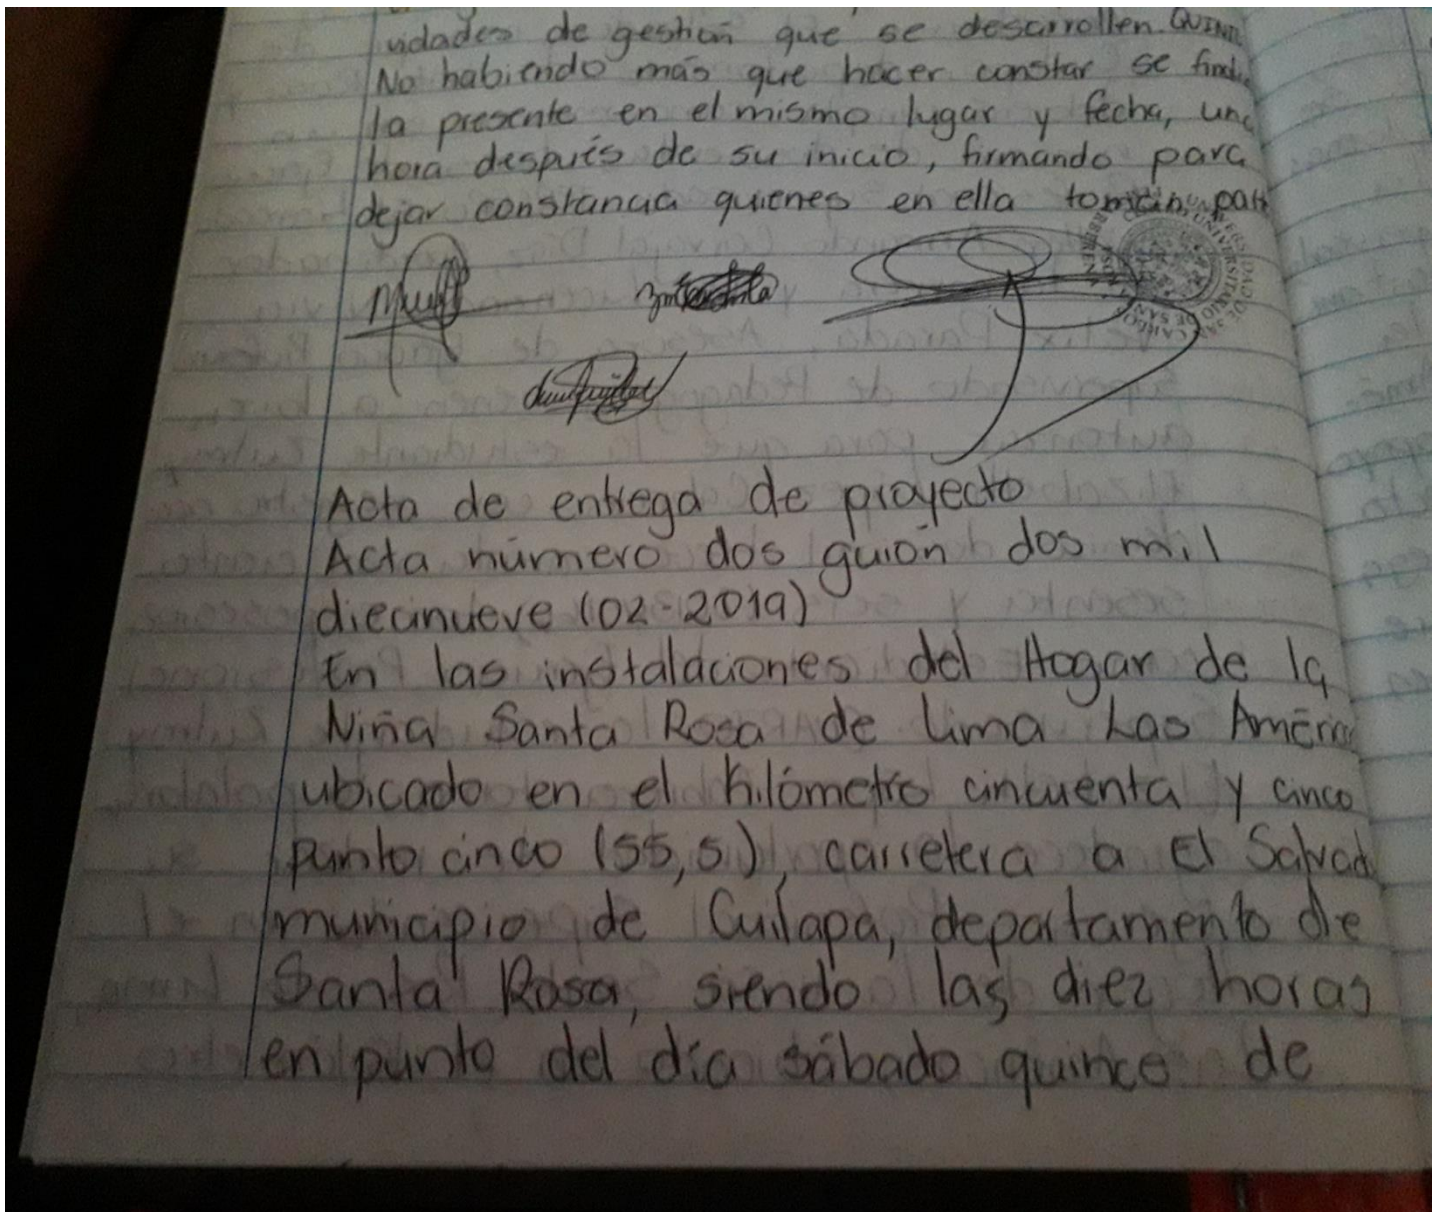 vidades de gestión que se desarrollen. QUINT
No habiendo más que hacer constar se
la presente en el mismo lugar y fecha, una
hora después de su inicio, firmando para
dejar constancia quienes en ella toman part
Acta de entrega de proyecto
Acta número dos guión dos mil
diecinueve (02-2019)
En las instalaciones del Hogar de la
Niña Santa Rosa de Lima Las Améric
ubicado en el kilómetro cincuenta y cinco
punto cinco (55,5), carretera a El Salvad
municipio de Cuilapa, departamento de
Santa Rosa, siendo las diez horas
en punto del día sábado quince de